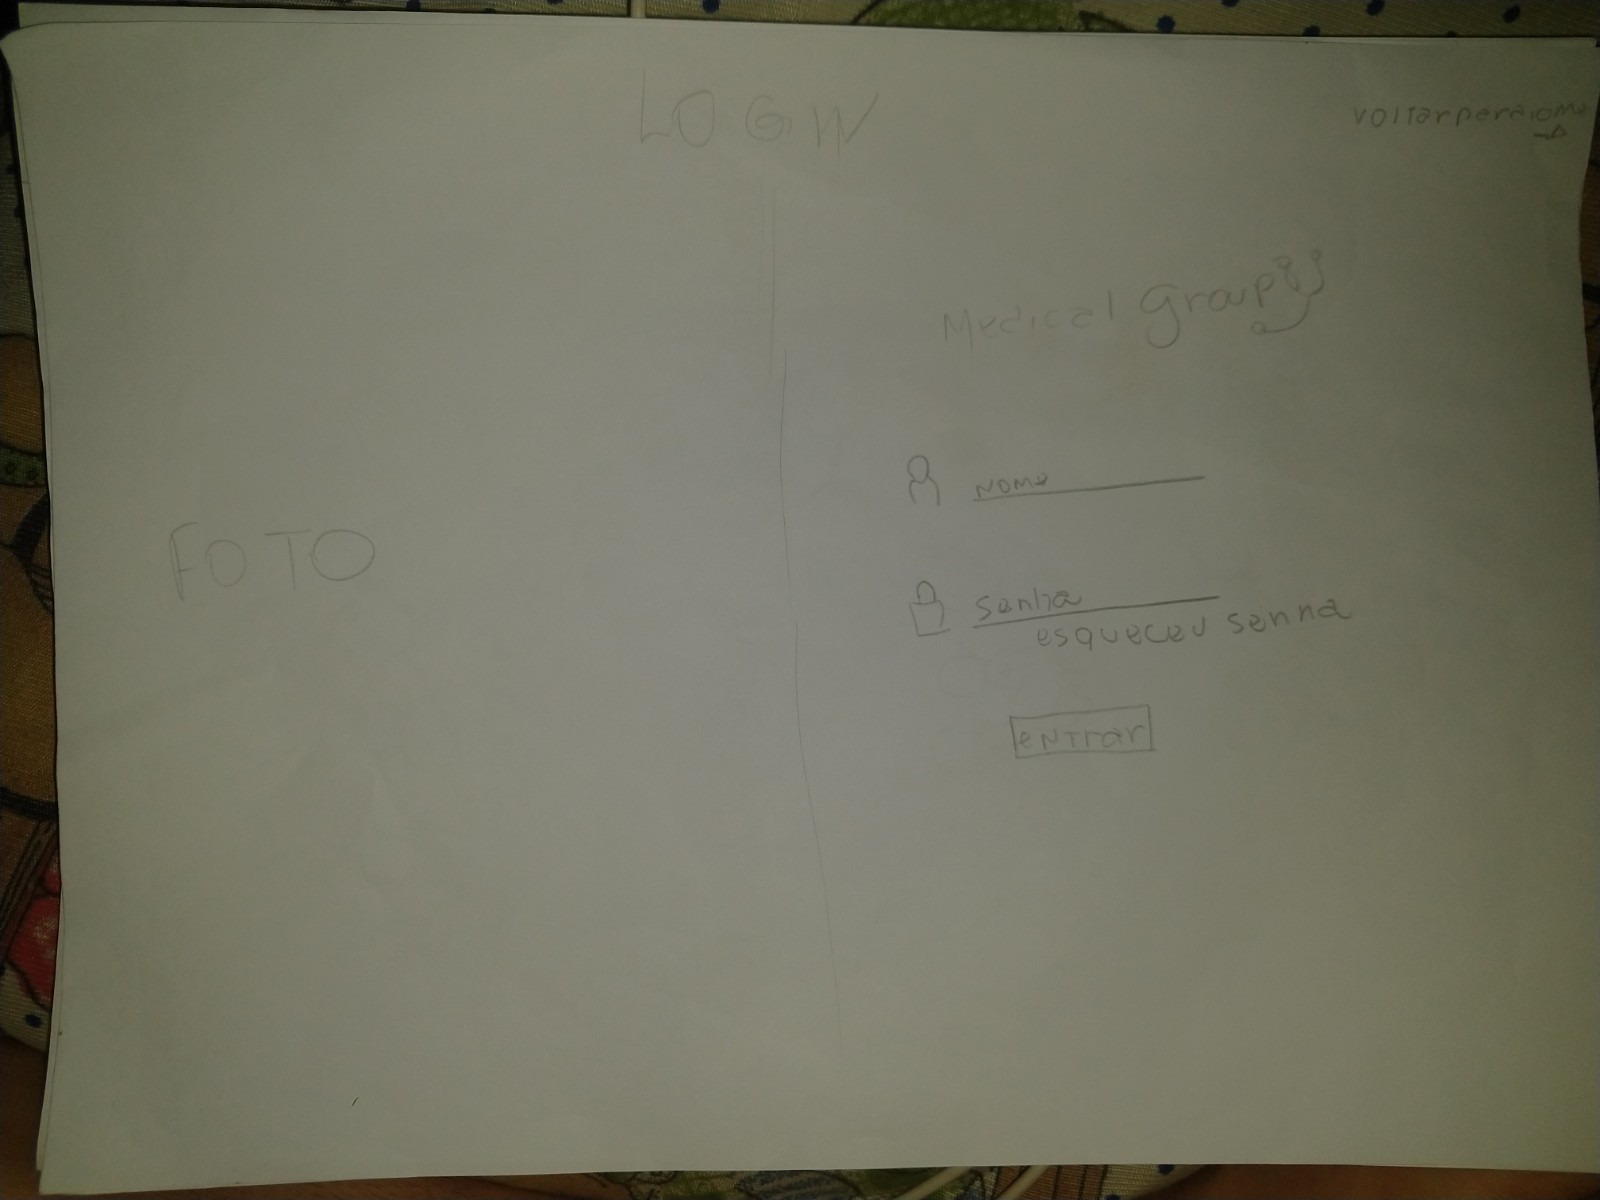 LOGIN
voltar para
Medical Group
FOTO
Nome
senha
esqueceu senha
entrar